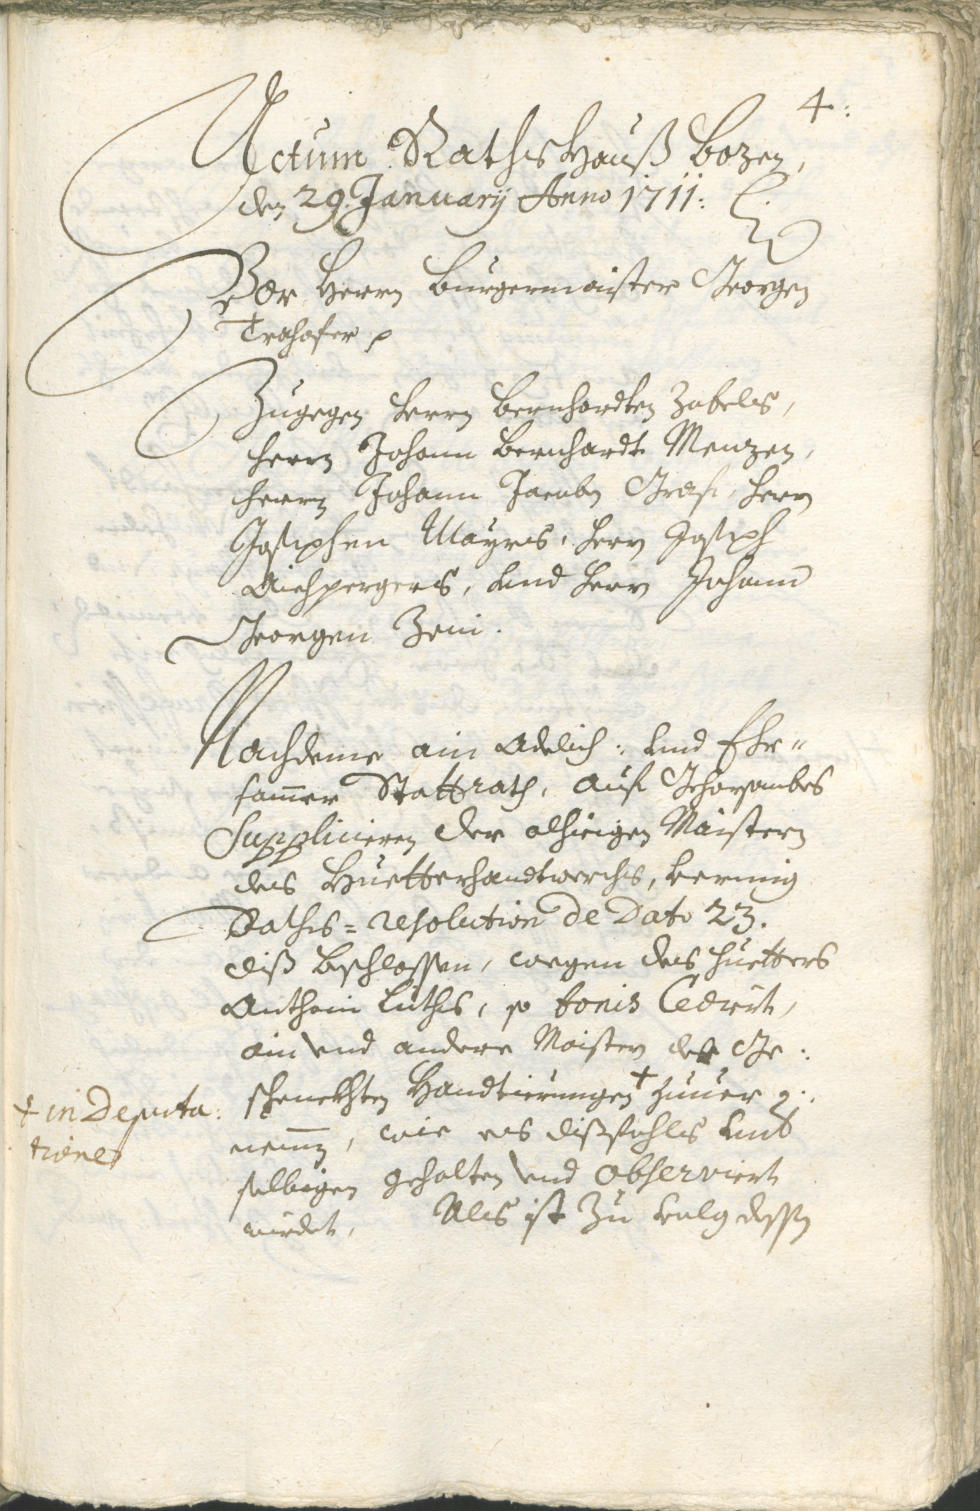 4:
Actum Rathshauß Bozen,
den 29. January Anno 1711:
Vor Herrn Burgermaister Georgen
Trahofer p
Zugegen Herrn Bernhardten Zabels,
Herrn Johann Bernhardt Menzen,
Herrn Johann Jacobn Graf, Herrn
Josephen Mayrs, Herrn Joseph
Aichpergers, und Herrn Johann
Georgen Zeni.
Nachdeme ain Adelich: und Ehr-
samer Stattrath, auf Gehorsambes
Supplicieren der alhieigen Maistern
des Huetterhandtwerchs, vermüg
Raths=resolution de Dato 23.
diß beschlossen, wegen des Huetters
Anthoni Luths, so bonis Cediert,
ain und andere Maister der Ge:
schenckhten Handtierungen + zuuer=
nemen, wie es dißfahls umb
selbigen gehalten und observiert
wirdet, Als ist zu volg dessen
+ in Deputa:
tione